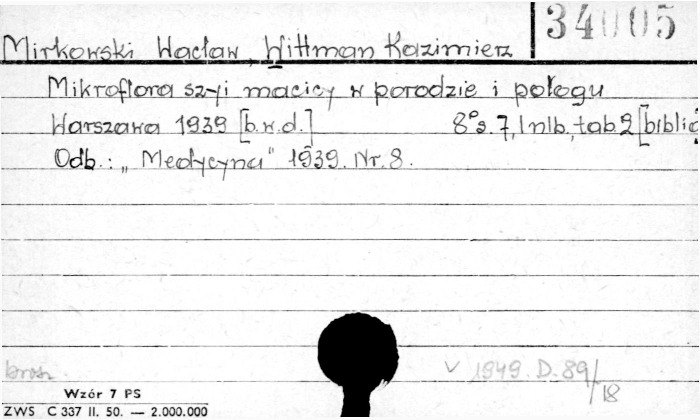 34005
Mirkowski Wacław, Wittman Kazimierz
Mikroflora szyji macicy w porodzie i połogu
Warszawa 1939 [b.w.d.] 8° s. 7, 1 nlb., tab. 2 [biblio
Odb.: „Medycyna" 1939. Nr. 8.
brosz.
v 1949. D. 89/18
Wzór 7 PS
ZWS C 337 II. 50. — 2.000.000